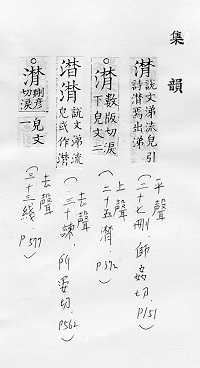 集韻
潸 說文涕流皃引詩潸焉出涕
（二十七刪．師姦切．P151）
○潸 數版切淚下皃文二
上聲
（二十五潸．P372）
澘潸 說文涕流皃或作潸
去聲
（三十諫．所晏切．P562）
○潸 刪彥切淚皃文一
去聲
（三十三綫．P577）